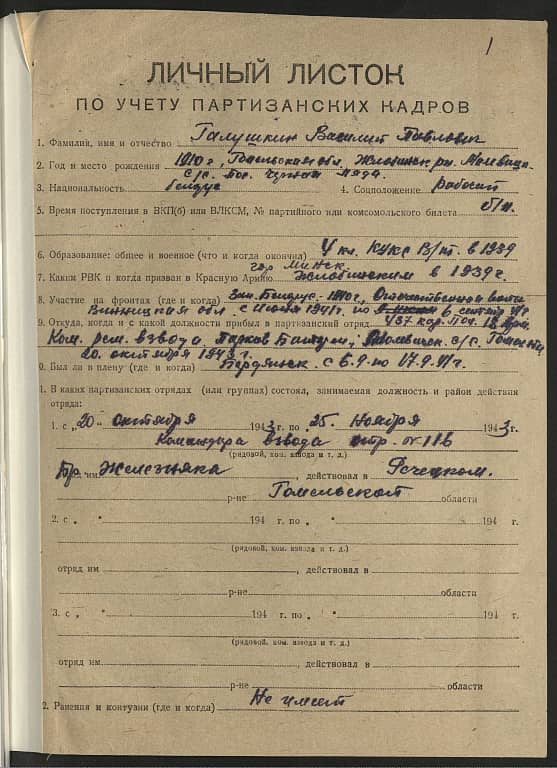 1
ЛИЧНЫЙ ЛИСТОК
ПО УЧЕТУ ПАРТИЗАНСКИХ КАДРОВ
1. Фамилия, имя и отчество Галушкин Василий Павлович
2. Год и место рождения 1910 г, Гомельская обл, Жлобинск. рн.
с/с. Пос.
3. Национальность белдус 4. Соцположение рабочий
5. Время поступления в ВКП(б) или ВЛКСМ, № партийного или комсомольского билета б/п.
6. Образование: общее и военное (что и когда окончил) 4 кл. КУКС в 1939
гор Минск
7. Каким РВК и когда призван в Красную Армию Жлобинским в 1939 г.
8. Участие на фронтах (где и когда) Зап. Отечественной войны
Винницкая обл. с Июня 1941 г. по 6 сентяб
9. Откуда, когда и с какой должности прибыл в партизанский отряд 437
Ком. рем. взвода с/с.
20. октября 1943 г.
0. Был ли в плену (где и когда) Бердянск. с 6.9. по 17.9.41 г.
1. В каких партизанских отрядах (или группах) состоял, занимаемая должность и район действия
отряда:
1. с „20" октября 1943 г. по 25. Ноября 1943 г.
Командира взвода отр. 116
(рядовой, ком. взвода и т. д.)
бр. им Железняка, действовал в Речецком.
р-не Гомельской области
2. с „ " 194 г. по „ " 194 г.
(рядовой, ком. взвода и т. д.)
отряд им , действовал в
р-не области
3. с „ " 194 г. по „ " 194 г.
(рядовой, ком. взвода и т. д.)
отряд им , действовал в
р-не области
2. Ранения и контузии (где и когда) Не имеет